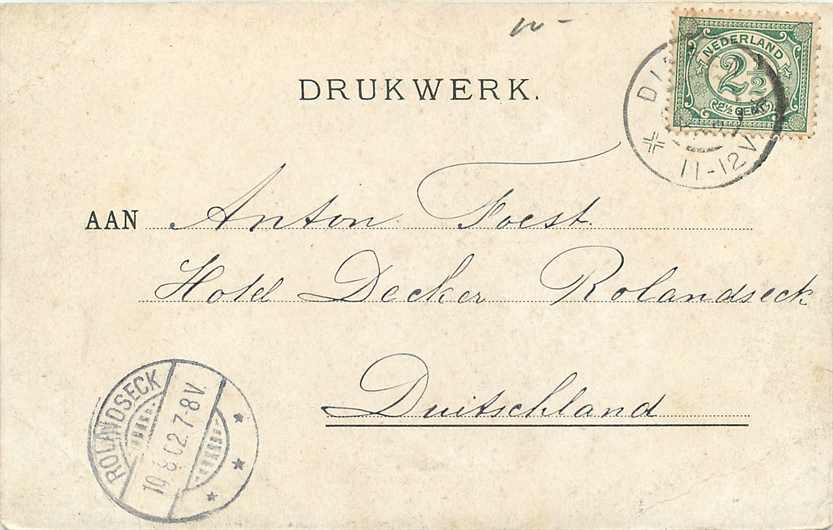 NEDERLAND
2½
2½ CENT
11-12V
DRUKWERK.
AAN Anton Foest.
Hotel Decker Rolandseck
Duitschland
ROLANDSECK
10.8.02.7-8V.